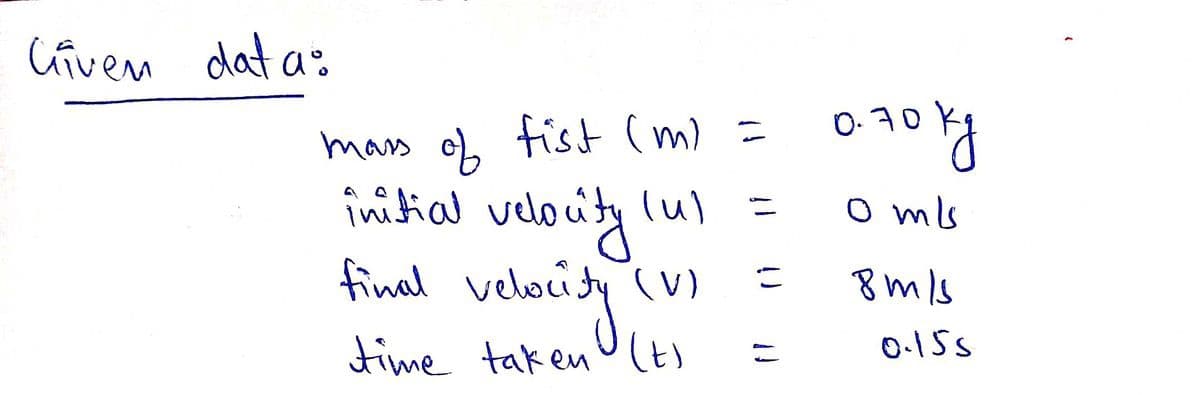 Given data:
mass of fist (m) = 0.70 kg
initial velocity (u) = 0 m/s
final velocity (v) = 8 m/s
time taken (t) = 0.15s